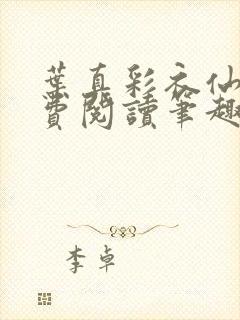 葉真彩衣仙
費閱讀筆趣
李卓